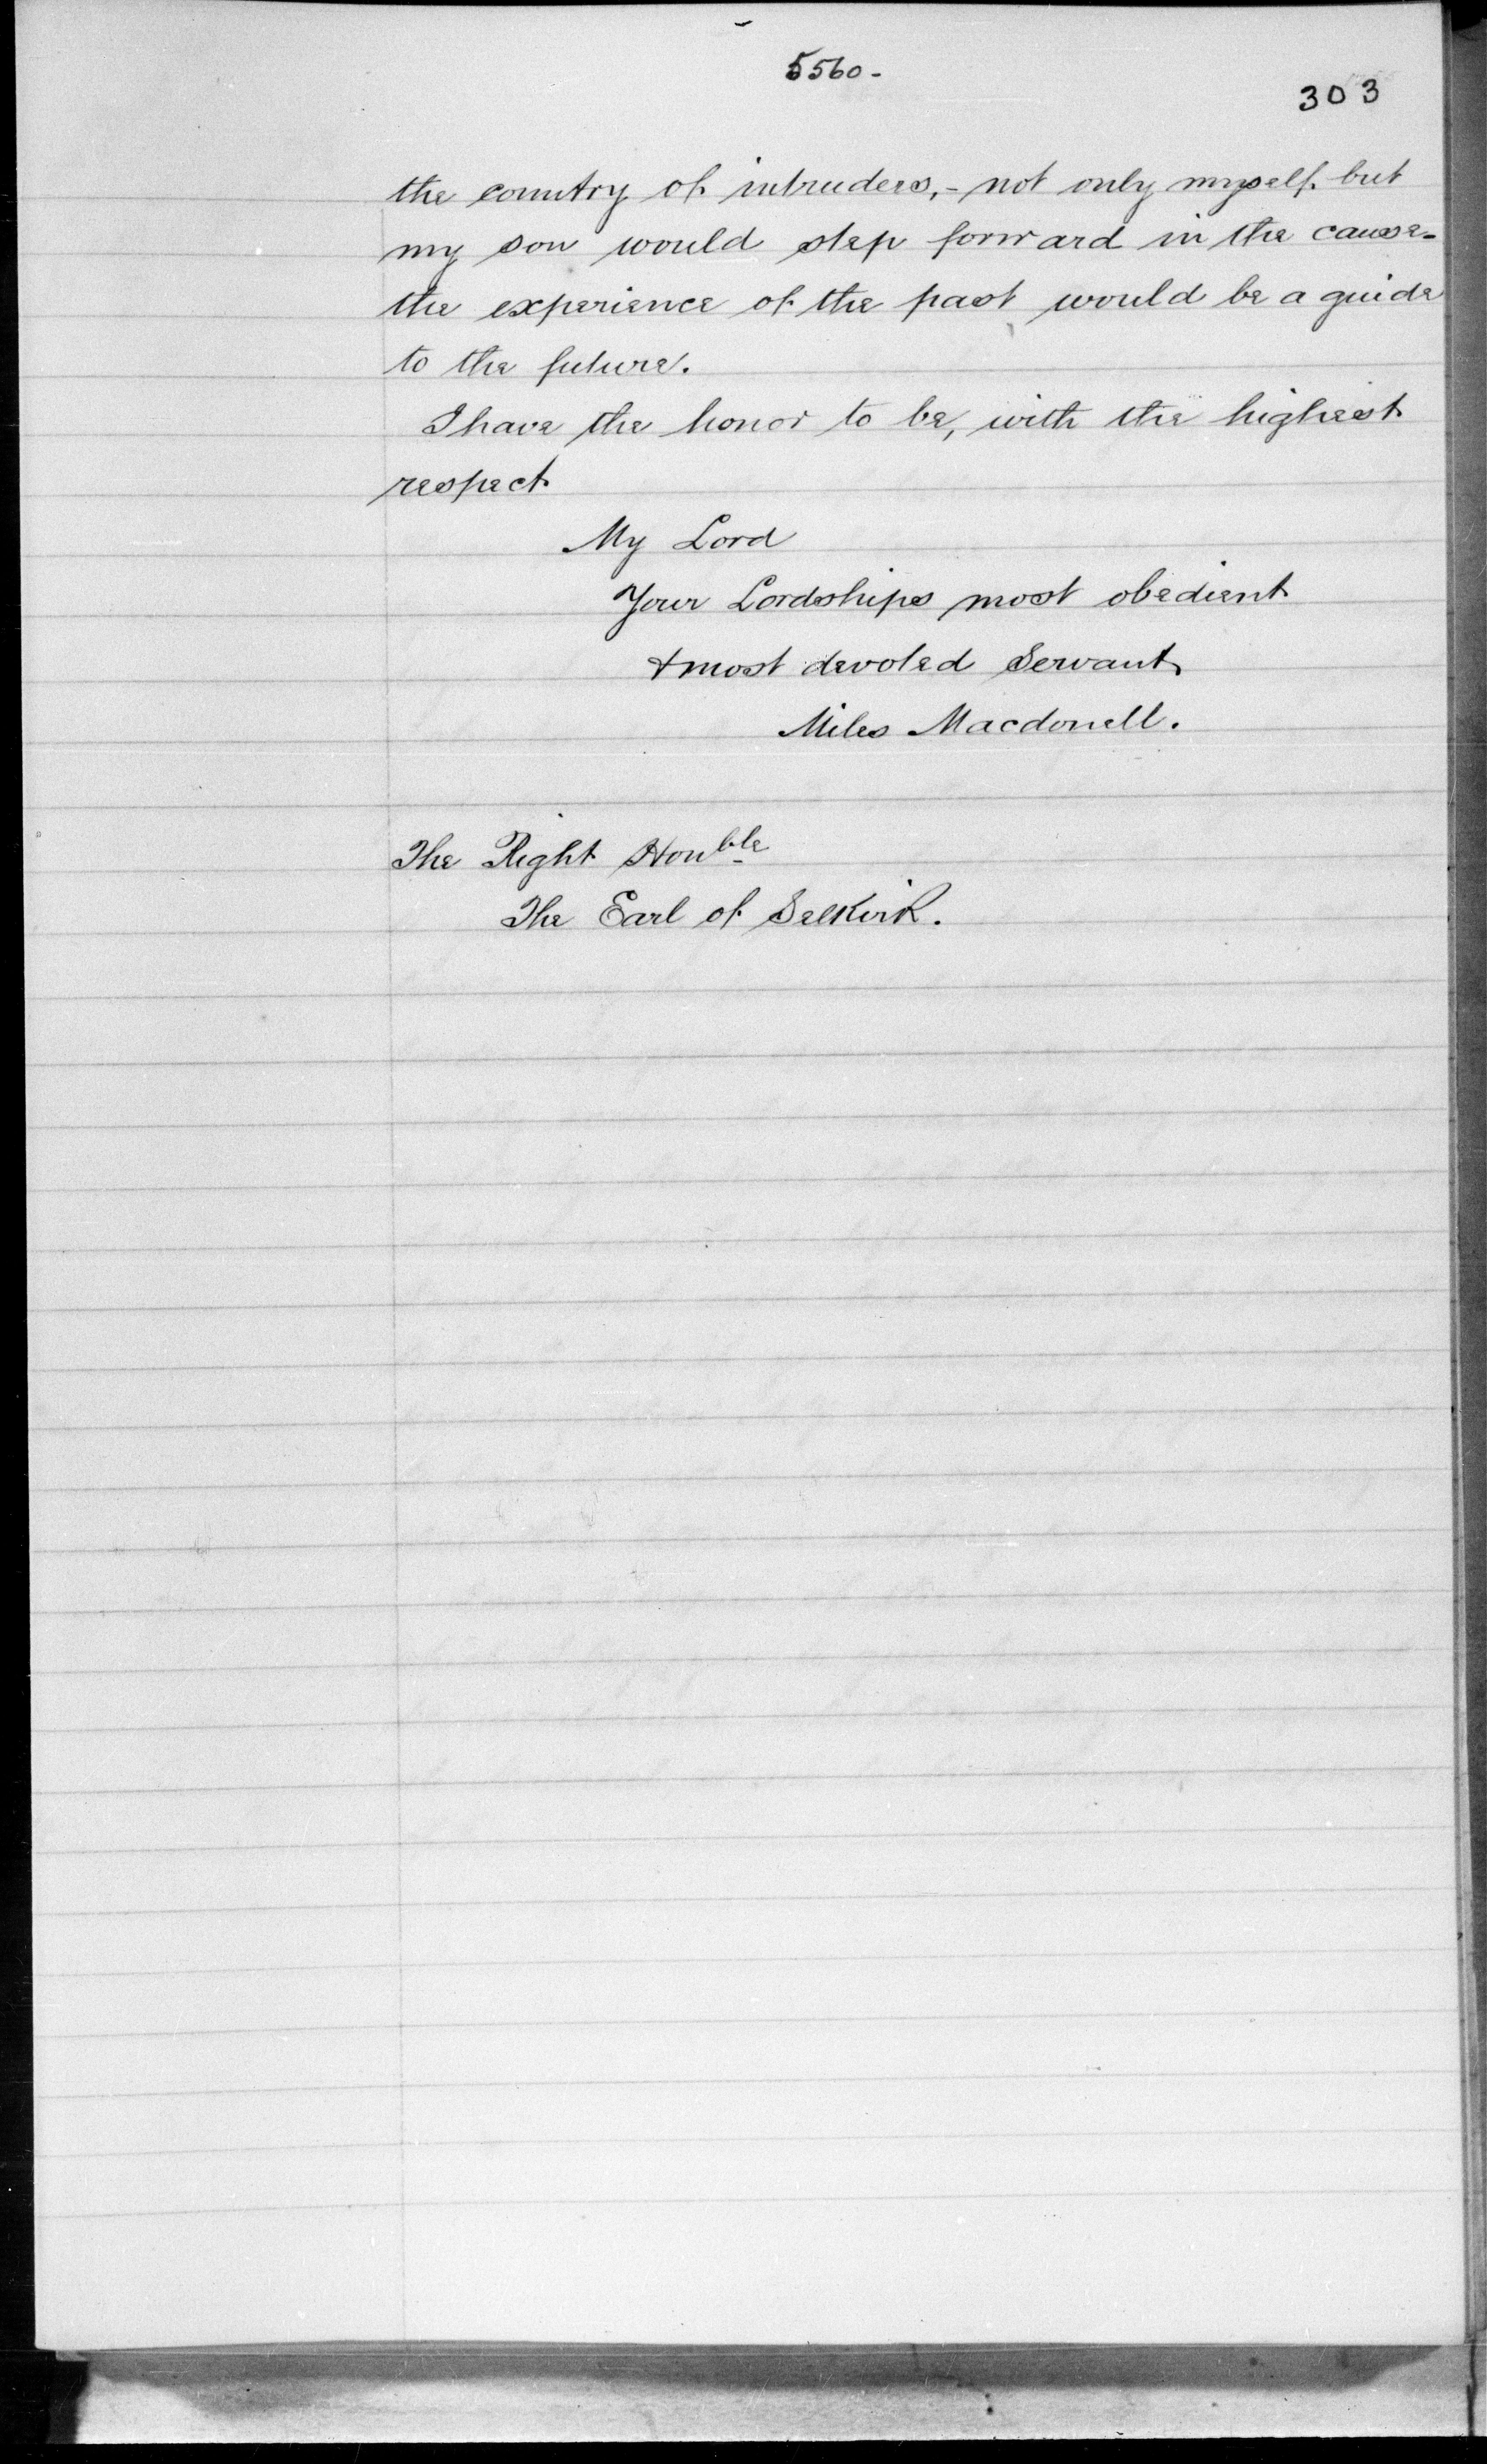 5560-
303
the country of intruders, - not only myself but
my son would step forward in the cause -
the experience of the past would be a guide
to the future.
I have the honor to be, with the highest
respect
My Lord
Your Lordships most obedient
& most devoted Servant
Miles Macdonell.
The Right Honble
The Earl of Selkirk.